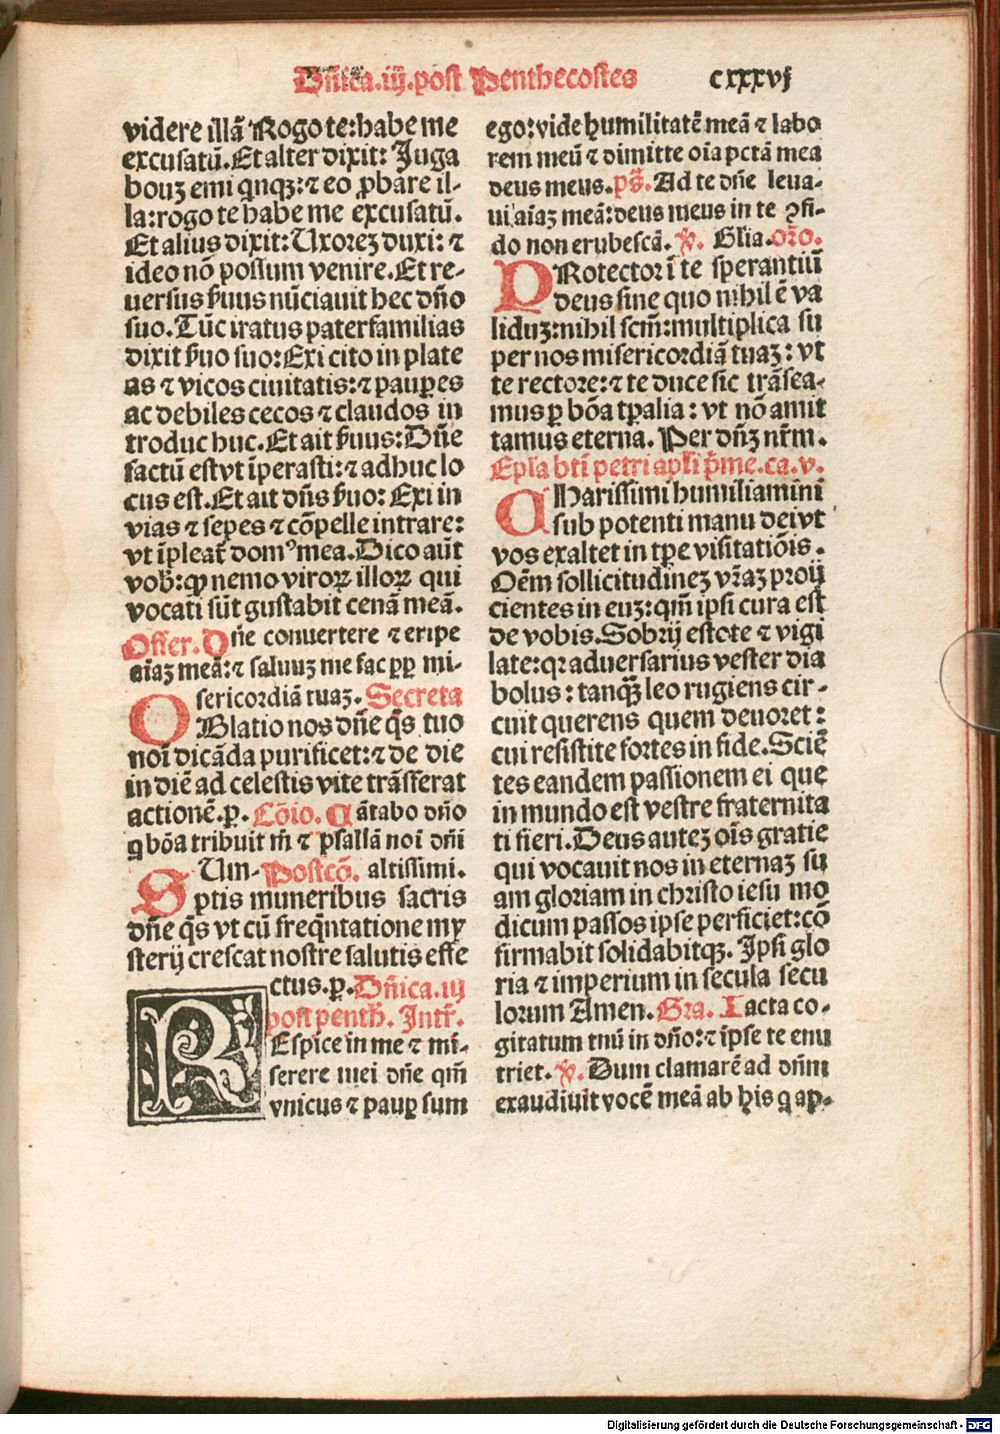 Dñica.iij.post Penthecostes cxxxvj
videre illã Rogo te:habe me
excusatũ.Et alter dixit: Juga
bouȝ emi qnqȝ:⁊ eo ꝓbare il-
la:rogo te habe me excusatũ.
Et alius dixit: Uxoreȝ duxi: ⁊
ideo nõ possum venire.Et re-
uersus ẜuus nũciauit hec dño
suo.Tũc iratus paterfamilias
dixit ẜuo suo:Exi cito in plate
as ⁊ vicos ciuitatis:⁊ pauꝑes
ac debiles cecos ⁊ claudos in
troduc huc.Et ait ẜuus:Dñe
factũ est vt ĩperasti:⁊ adhuc lo
cus est.Et ait dñs ẜuo: Exi in
vias ⁊ sepes ⁊ cõpelle intrare:
vt ĩpleat̃ domꝰ mea.Dico aũt
vob̃:ꝙ nemo viroꝝ illoꝝ qui
vocati sũt gustabit cenã meã.
Offer. Dñe conuertere ⁊ eripe
aĩaȝ meã:⁊ saluuȝ me fac ꝓp mi-
sericordiã tuaȝ. Secreta
OBlatio nos dñe q̃s tuo
noĩ dicãda purificet:⁊ de die
in diẽ ad celestis vite trãsferat
actionẽ.ꝑ. Cõio. Cãtabo dño
q bõa tribuit m̃ ⁊ psallã noĩ dñi
altissimi. Postcõ. SUm-
ptis muneribus sacris
dñe q̃s vt cũ freq̃ntatione my
sterij crescat nostre salutis effe
ctus.ꝑ. Dñica.iij
post penth̃. Intr̃.
REspice in me ⁊ mi-
serere mei dñe qm̃
vnicus ⁊ pauꝑ sum
ego:vide humilitatẽ meã ⁊ labo
rem meũ ⁊ dimitte oĩa pctã mea
deus meus. ps̃. Ad te dñe leua-
ui aĩaȝ meã:deus meus in te ꝯfi-
do non erubescã. ℣. Glia. orõ.
PRotector ĩ te sperantiũ
deus sine quo nihil ẽ va
liduȝ:nihil scm̃:multiplica su
per nos misericordiã tuaȝ: vt
te rectore:⁊ te duce sic trãsea-
mus ꝑ bõa tꝑalia: vt nõ amit
tamus eterna. Per dñȝ nr̃m.
Epl̃a bt̃i petri apl̃i p̃me.ca.v.
CHarissimi humiliamini
sub potenti manu dei vt
vos exaltet in tꝑe visitatiõis.
Oẽm sollicitudineȝ vr̃aȝ proij
cientes in euȝ:qm̃ ipsi cura est
de vobis.Sobrij estote ⁊ vigi
late:qꝛ aduersarius vester dia
bolus: tanqȝ̃ leo rugiens cir-
cuit querens quem deuoret:
cui resistite fortes in fide.Sciẽ
tes eandem passionem ei que
in mundo est vestre fraternita
ti fieri.Deus auteȝ oĩs gratie
qui vocauit nos in eternaȝ su
am gloriam in christo iesu mo
dicum passos ipse perficiet:cõ
firmabit solidabitqȝ. Ipsi glo
ria ⁊ imperium in secula secu
lorum Amen. Gra. Iacta co-
gitatum tuũ in dño:⁊ ipse te enu
triet. ℣. Dum clamarẽ ad dñm
exaudiuit vocẽ meã ab his q ap-
Digitalisierung gefördert durch die Deutsche Forschungsgemeinschaft - DFG